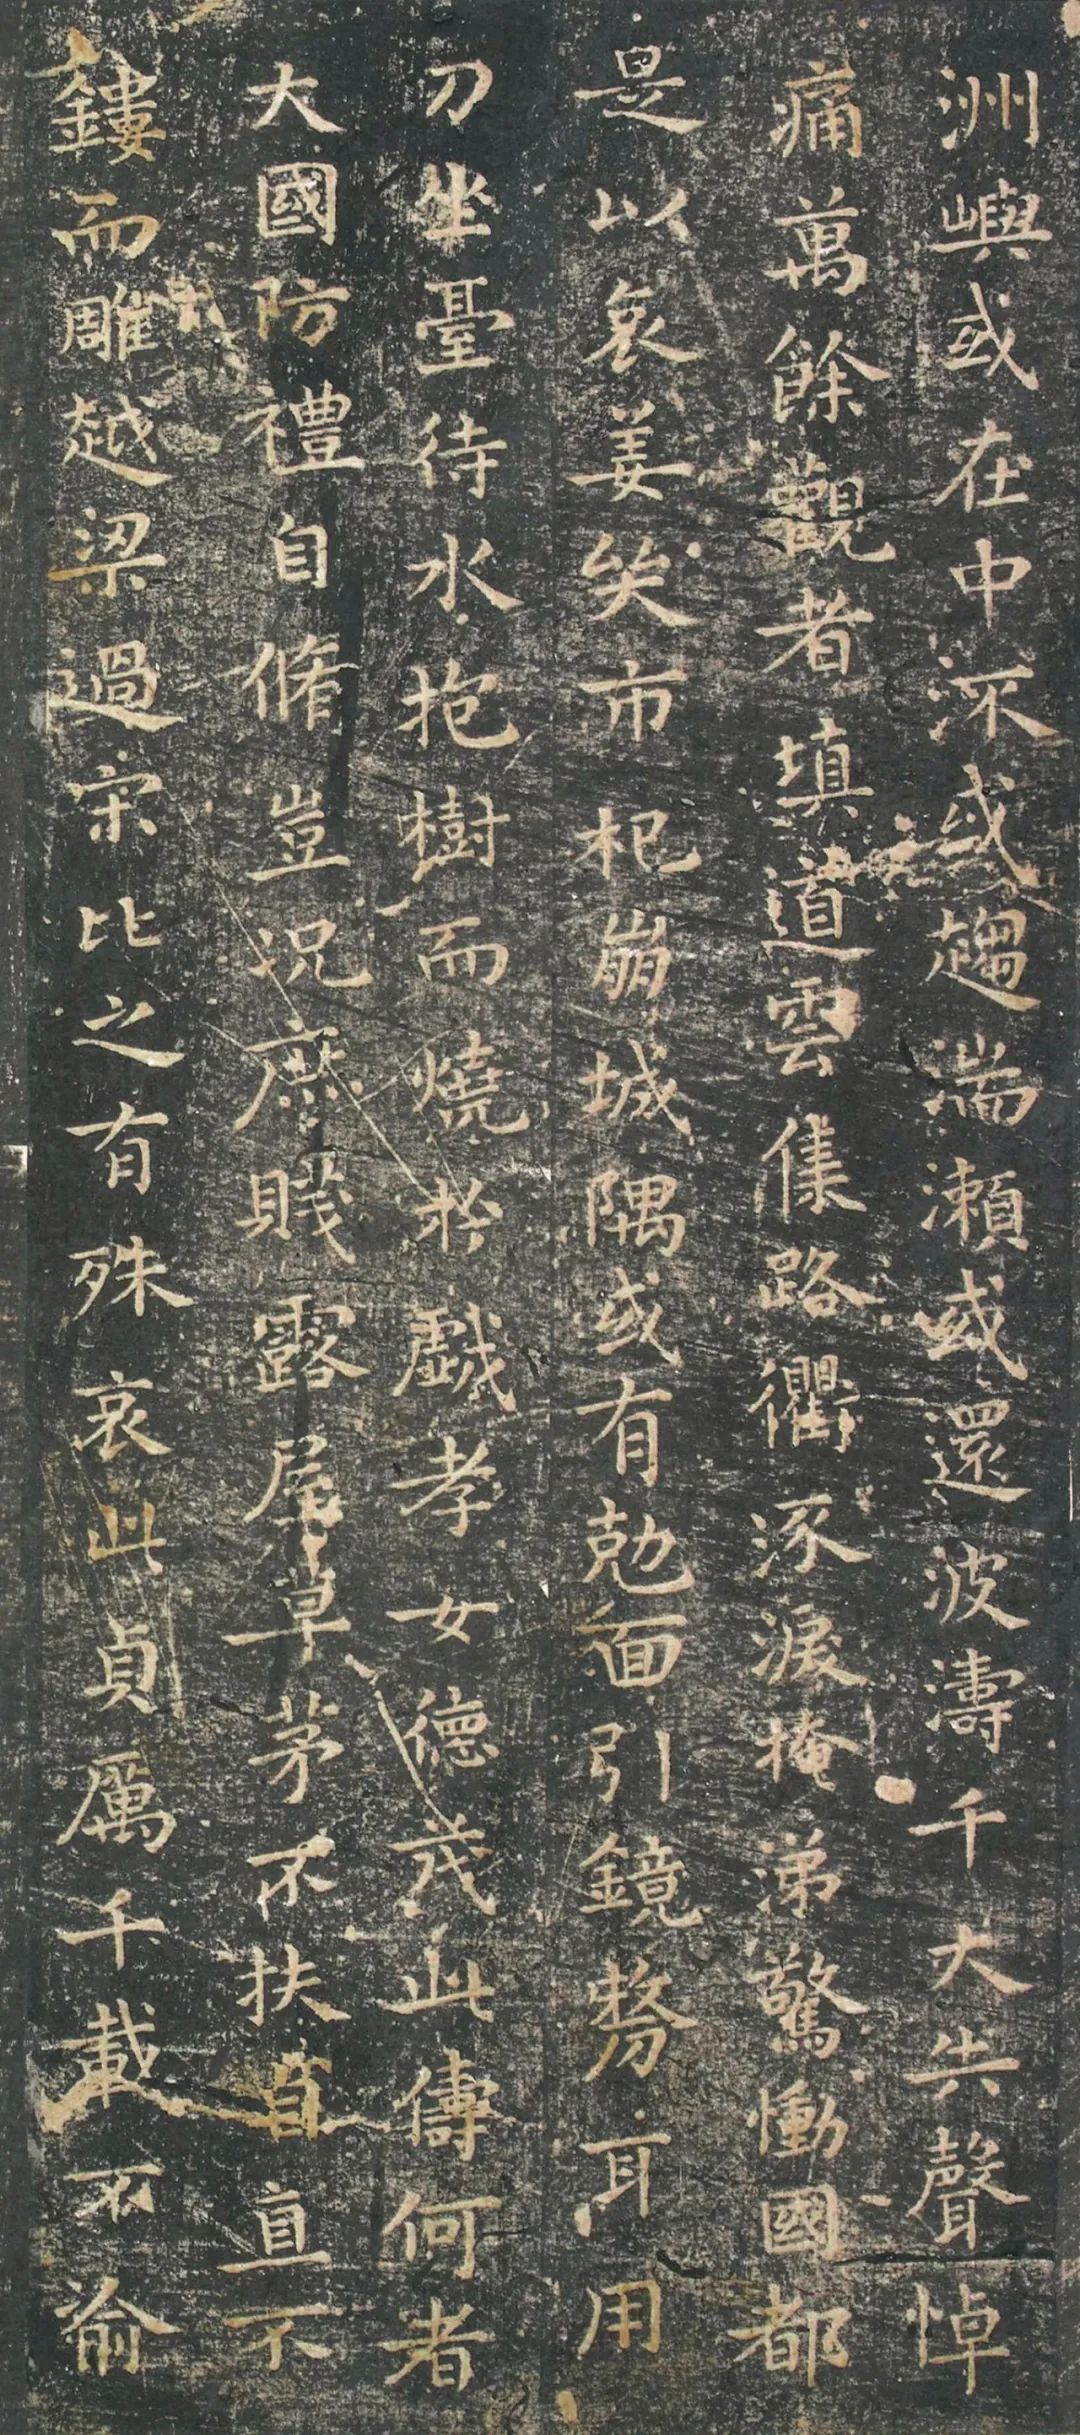 洲嶼或在中流或趨湍瀨或還波濤千夫共聲悼
痛萬餘觀者填道雲集路衢泳淚掩涕驚慟國都
是以哀姜哭市杞崩城隅或有尅面引鏡剺耳用
刀坐臺待水抱樹而燒於戲孝女德茂此儔何者
大國防禮自脩豈況庶賤露屋草茅不扶自直不
鏤而雕越梁過宋比之有殊哀此貞厲千載不渝